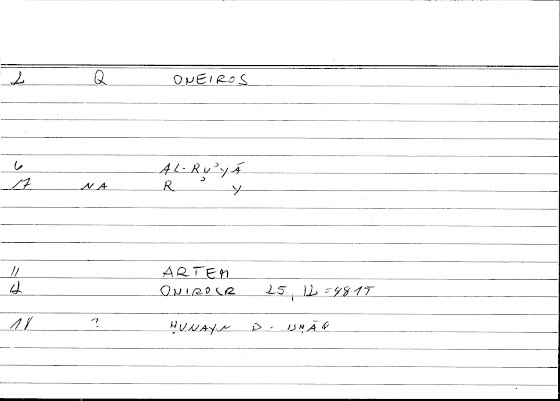 2 Q ONEIROS
6 AL-RUʾYĀ
17 NA R ʾ Y
11 ARTEM
12 ONIROCR 25, 12 = 48 15
18 ? ḤUNAYN B. ISḤĀQ